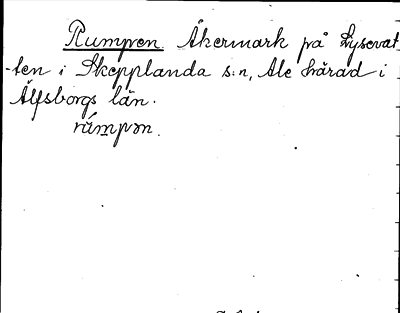 Rumpen Åkermark på Lysevat-
ten i Skepplanda s:n, Ale härad i
Älfsborgs län.
rúmpən.